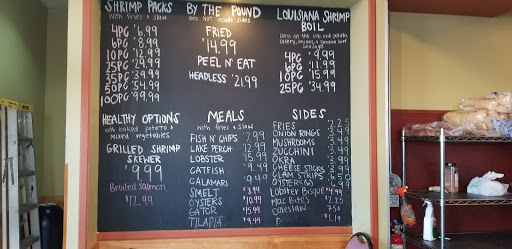 SHRIMP PACKS
with fries & slaw
4PC $6.99
6PC $8.99
10PC $12.99
25PC $29.99
35PC $39.99
50PC $54.99
100PC $99.99
BY THE POUND
DOES NOT INCLUDE SIDES
FRIED
$14.99
PEEL N' EAT
HEADLESS $21.99
LOUISIANA SHRIMP
BOIL
Corn on the cob, red potato,
4PC $9.99
6PG $11.99
10PC $15.99
25PC $34.99
HEALTHY OPTIONS
with baked potato &
mixed vegetables
GRILLED SHRIMP
SKEWER
$9.99
Broiled Salmon
$12.99
MEALS
with fries & slaw
FISH N' CHIPS 7.99
LAKE PERCH 12.99
LOBSTER 15.99
CATFISH 9.49
CALAMARI 9.49
SMELT $8.99
OYSTERS $10.99
GATOR $15.99
TILAPIA $9.49
SIDES
FRIES 2.25
ONION RINGS 3.49
MUSHROOMS 3.49
ZUCCHINI 3.49
OKRA 3.49
CHEESE STICKS 3.49
CLAM STRIPS 6.50
OYSTERS 5.99
Lobster Bisque $4.99
Mac Bites $2.25
Coleslaw